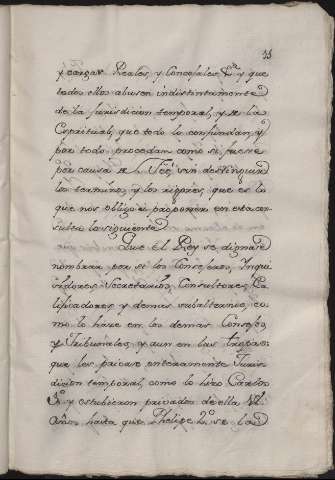 33
y cargas Reales, y Concejales &.ª y que
todos ellos abusen indistintamente
de la jurisdicion temporal, y de la
Espiritual, que todo lo confundan, y
por todo procedan como si fuese
por causa de Feé, sin destinguir
los terminos, y los
que nos obligó á proponer en esta con-
sulta lo siguiente
Que el Rey se dignase
nombrar por si los Consejeros, Inqui-
sidores, Secretarios, Consultores, Ca-
lificadores y demas subalternos, co-
mo lo hace en los demas Consejos,
y Tribunales, y aun en las
que les privase enteramente Juris-
dicion temporal, como lo hizo Carlos
5.º y estubieron privados de ella
Años, hasta que Phelipe 2.º se la